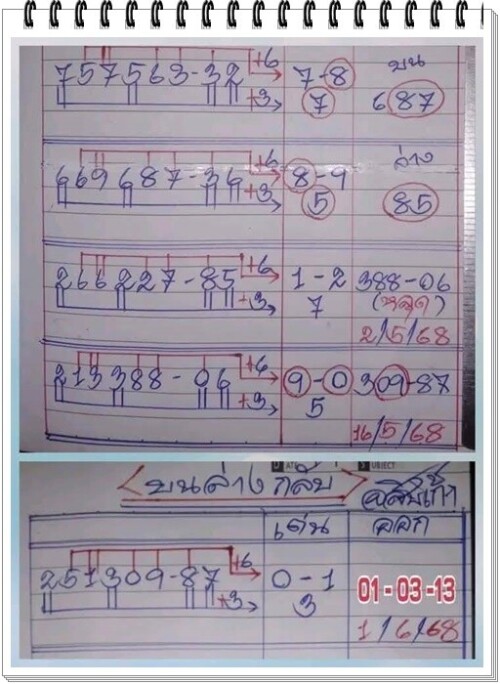 +6 บน
757563-32 7-8 687
+3 7
+6 ล่าง
669687-36 8-9 85
+3 5
+6
266227-85 1-2 388-06
+3 7 (หลุด)
2/5/68
+6
213388-06 9-0 309-87
+3 5
16/5/68
SUBJECT
<บนล่างกลับ>
เด่น ออก
+6
251309-87 0-1 01-03-13
+3 3
1/6/68